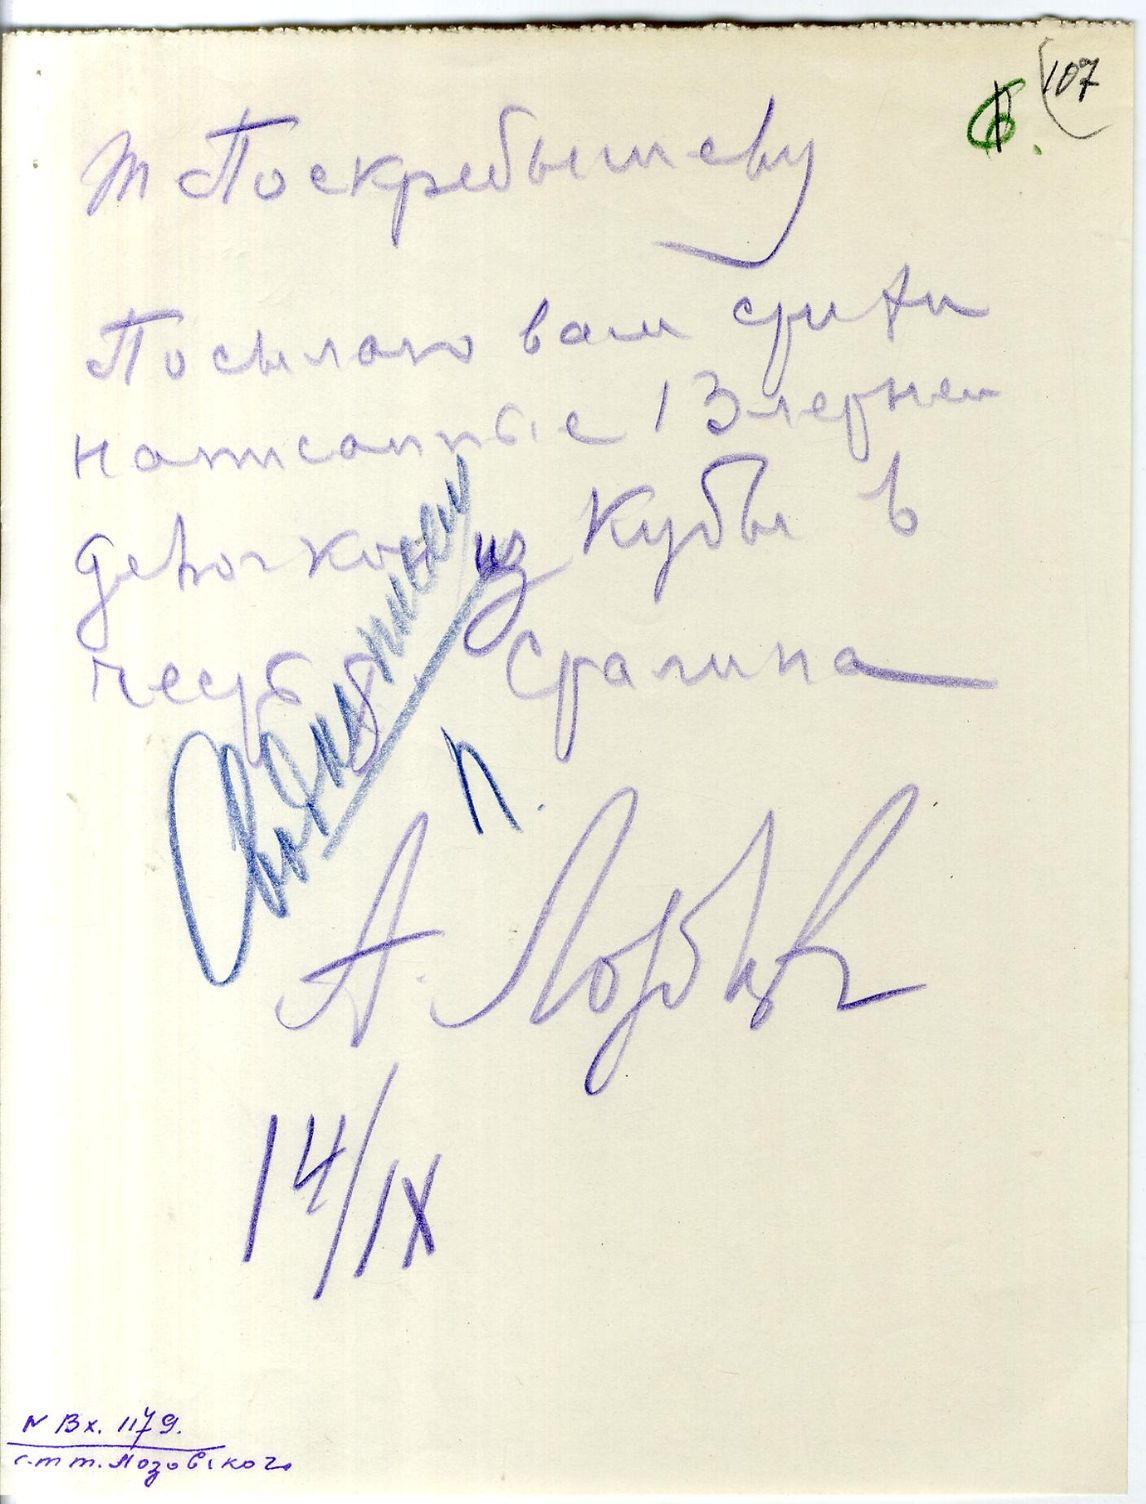 107
т Поскребышеву
Посылаю вам стихи
написанные 13 летней
девочкой из Кубы в
честь т. Сталина
п.
А. Лозовск
14/IX
N Вх. 1179.
от т. Лозовского